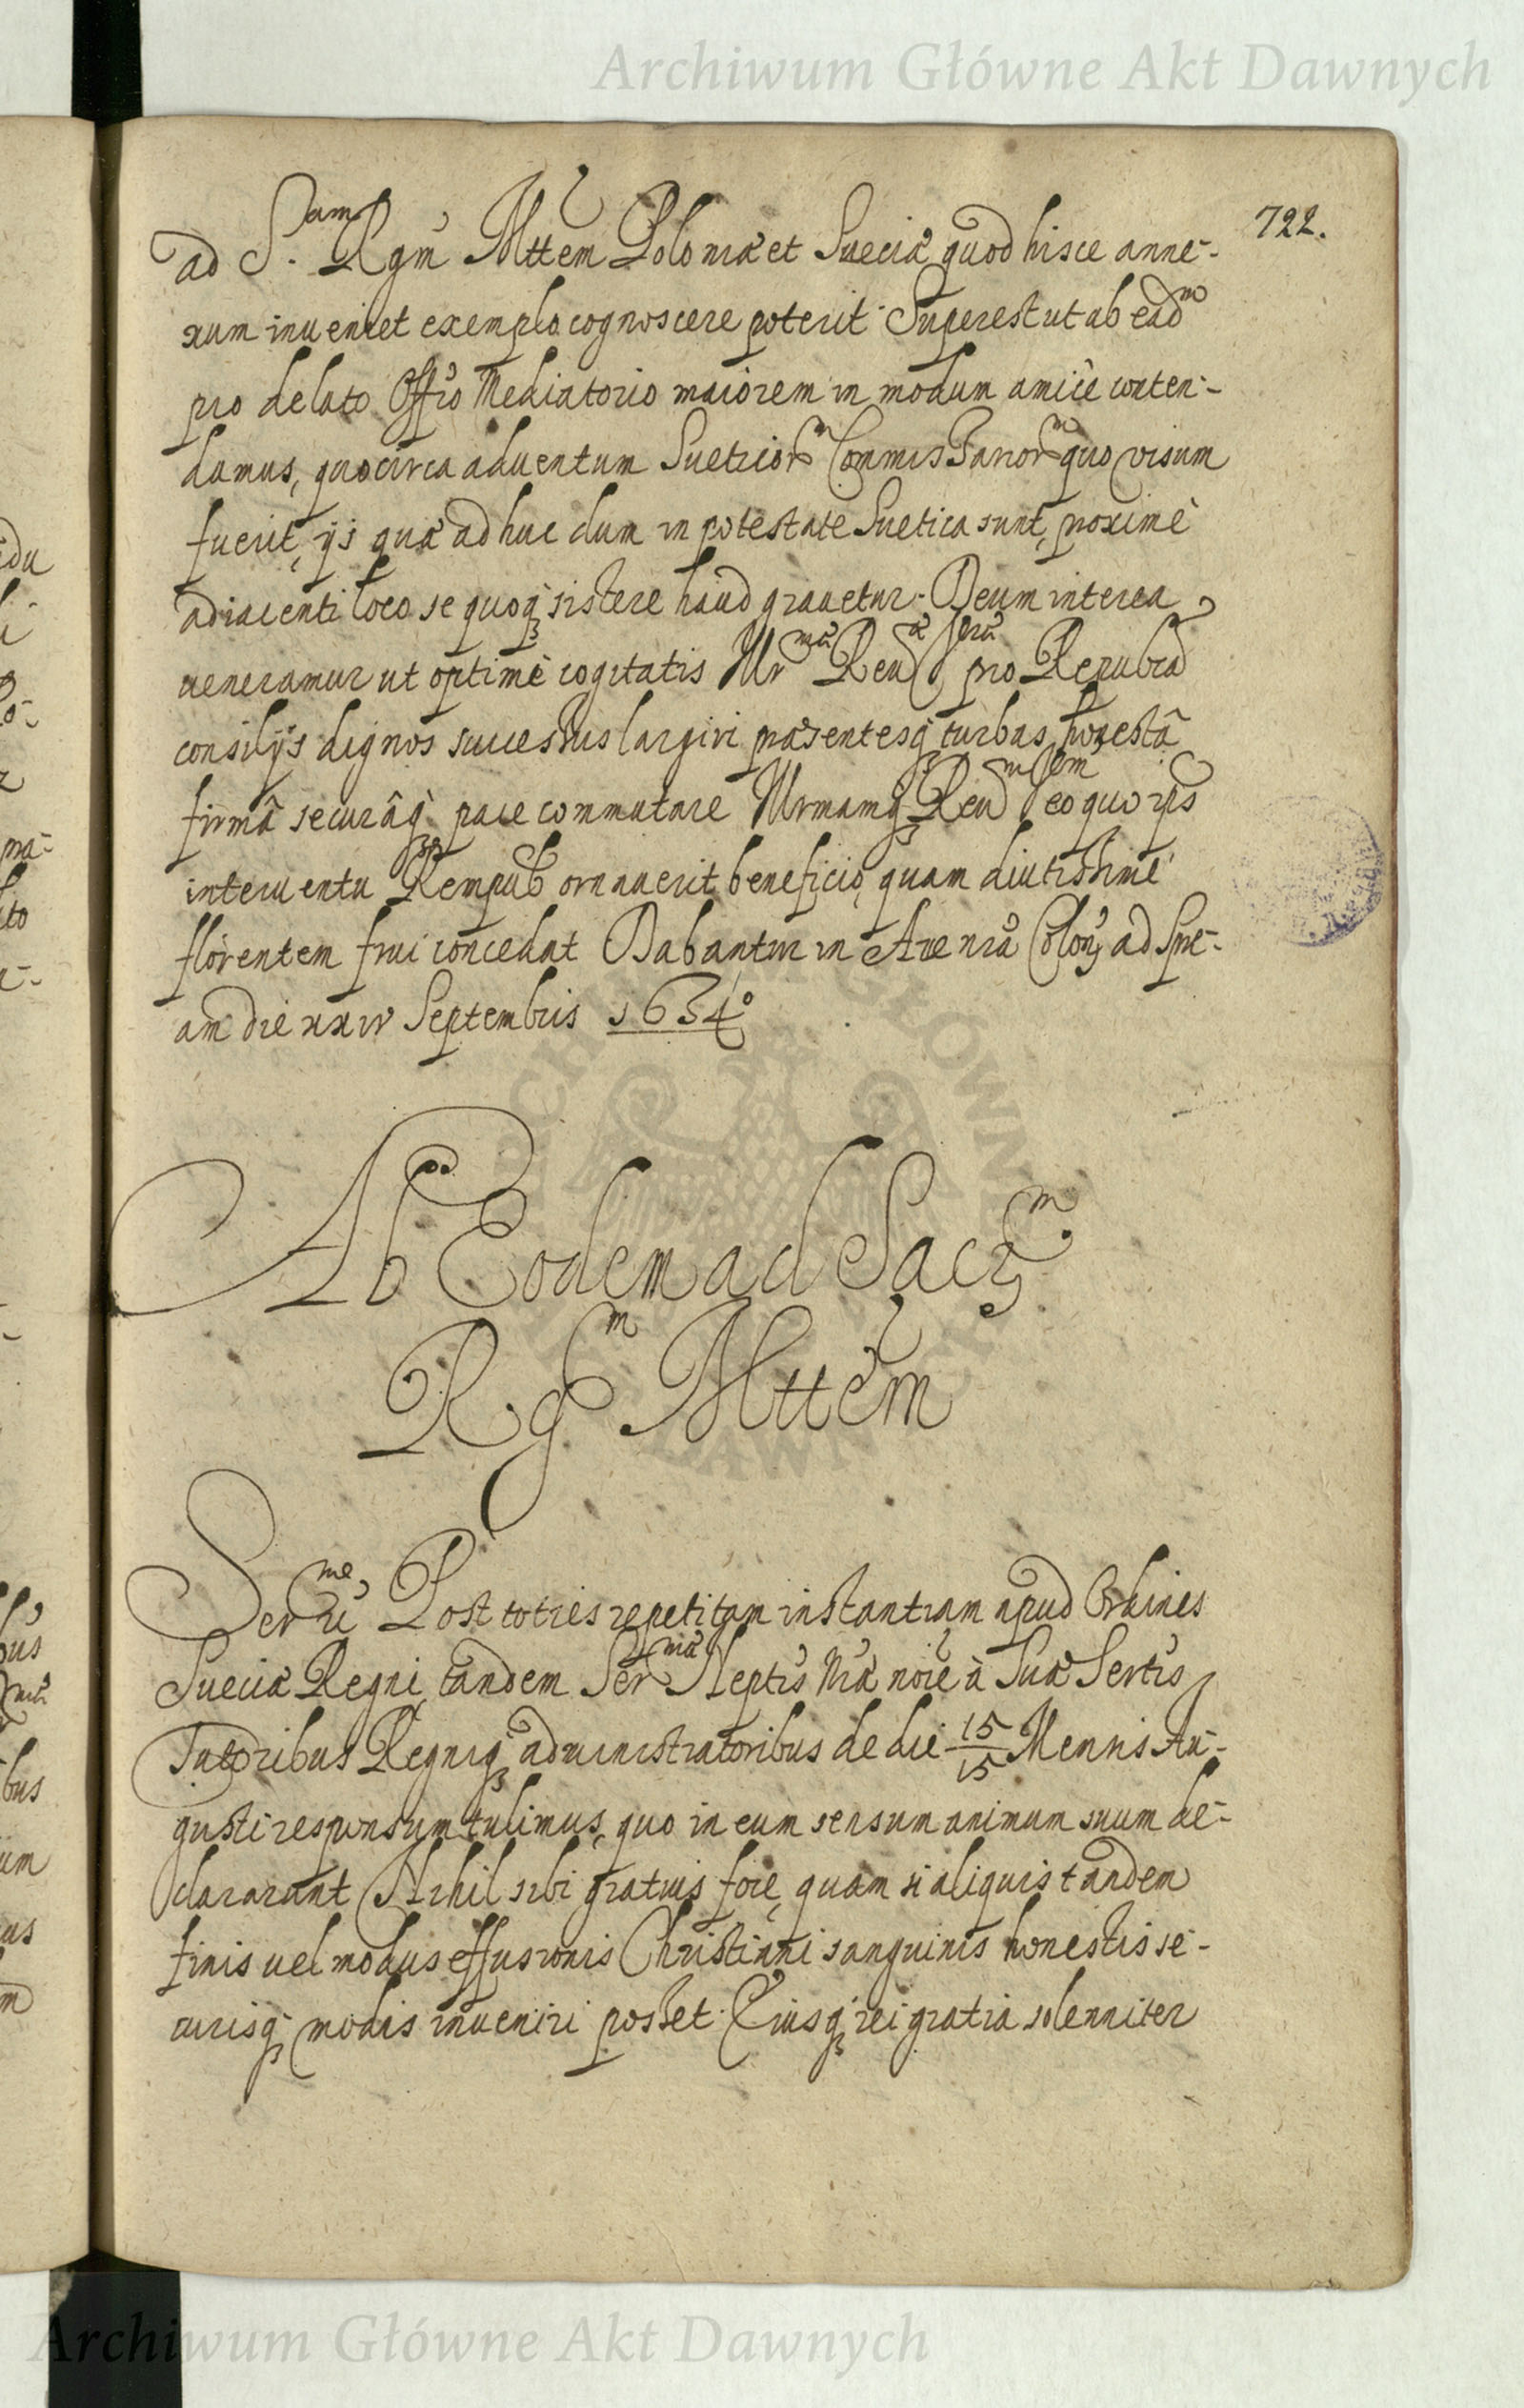 Archiwum Główne Akt Dawnych
722.
ad S.am Rgm Mttem Poloniæ et Sueciæ quod hisce anne-
xum inueniet exemplo cognoscere poterit. Superest ut ab eadm
pro delato Offio Mediatorio maiorem in modum amicè conten-
damus, quo circa aduentum Sueticorm Commissariorm quo visum
fuerit, ijs quæ ad huc dum in potestate Suetica sunt, proximè
adiacenti loco se quoq sistere haud grauetur. Deum interea
ueneramur ut optimè cogitatis Ill pro Republca
consilijs dignos successus largiri præsentesq turbas honestâ
firmâ securâq pace commutare eo quo ips
interuentu Rempub ornauerit beneficio, quam diutissimè
florentem frui concedat Dabantur in Arce nrã Colon ad Spre-
am die xxiv Septembris 1634º
Ab Eodem ad Sacrm
Rgm Mttem
Serme Post toties repetitam instantiam apud Ordines
Sueciæ Regni, tandem Sermæ Neptis Nræ noie à Suæ Sertis
Tutoribus Regniq administratoribus de die 15/15 Mensis Au-
gusti responsum tulimus, quo in eum sensum animum suum de-
clararant Nihil sibi gratius fore, quam si aliquis tandem
finis uel modus effusionis Christiani sanguinis honestis se-
curisq modis inueniri posset. Eiusq rei gratia solenniter
Archiwum Główne Akt Dawnych